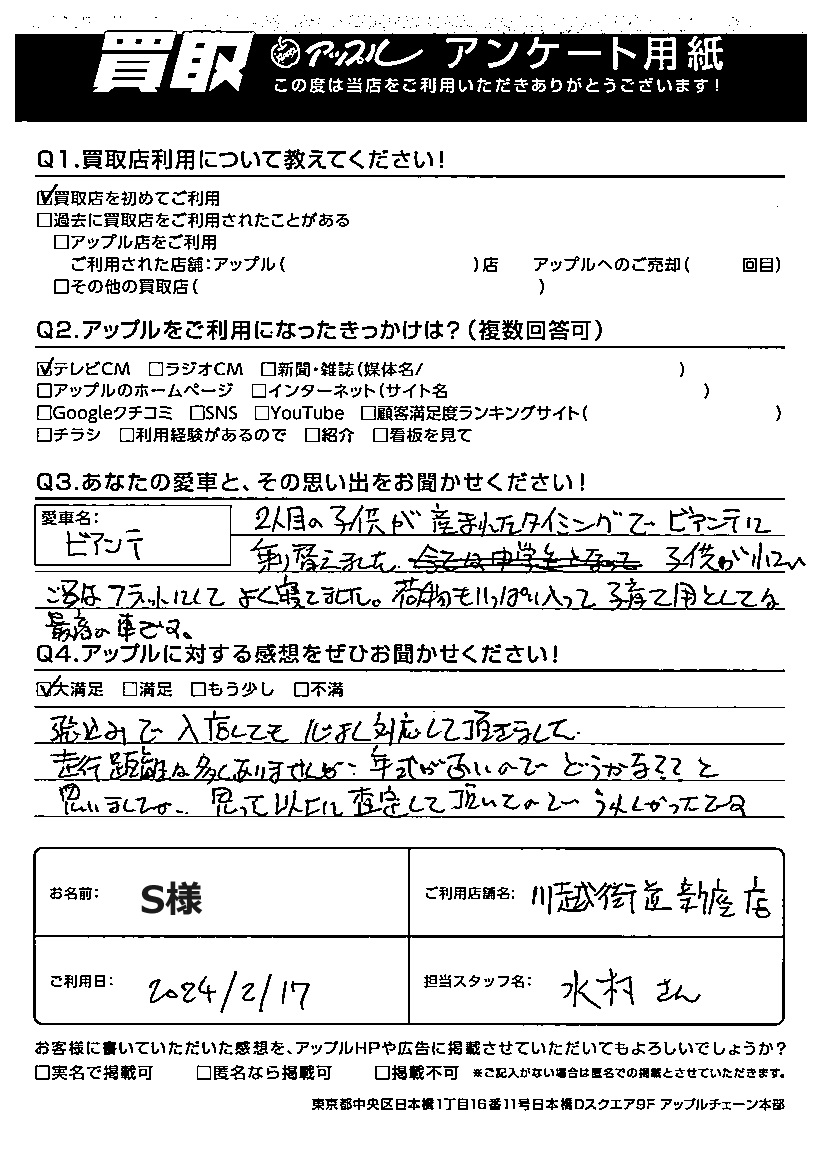 買取 アップル アンケート用紙
この度は当店をご利用いただきありがとうございます！
Q1.買取店利用について教えてください！
☑買取店を初めてご利用
□過去に買取店をご利用されたことがある
□アップル店をご利用
ご利用された店舗：アップル（　　　）店　アップルへのご売却（　　　回目）
□その他の買取店（　　　）
Q2.アップルをご利用になったきっかけは？（複数回答可）
☑テレビCM □ラジオCM □新聞・雑誌（媒体名/　　　）
□アップルのホームページ □インターネット（サイト名　　　）
□Googleクチコミ □SNS □YouTube □顧客満足度ランキングサイト（　　　）
□チラシ □利用経験があるので □紹介 □看板を見て
Q3.あなたの愛車と、その思い出をお聞かせください！
愛車名：
ビアンテ
2人目の子供が産まれたタイミングで ビアンテに
乗り替えました。今では中学生となって 子供が小さい
ころは フラットにして よく寝てました。荷物もいっぱい入って 子育て用としては
最高の車です。
Q4.アップルに対する感想をぜひお聞かせください！
☑大満足 □満足 □もう少し □不満
飛込みで 入店しても 心よく対応して頂きました。
走行距離は多くありませんが、年式が古いので どうかな？？と
思いましたが、思って以上に査定して頂いたので うれしかったです
お名前： S様
ご利用店舗名： 川越街道新座店
ご利用日： 2024/2/17
担当スタッフ名： 水村 さん
お客様に書いていただいた感想を、アップルHPや広告に掲載させていただいてもよろしいでしょうか？
□実名で掲載可 □匿名なら掲載可 □掲載不可 ※ご記入がない場合は匿名での掲載とさせていただきます。
東京都中央区日本橋1丁目16番11号日本橋Dスクエア9F アップルチェーン本部